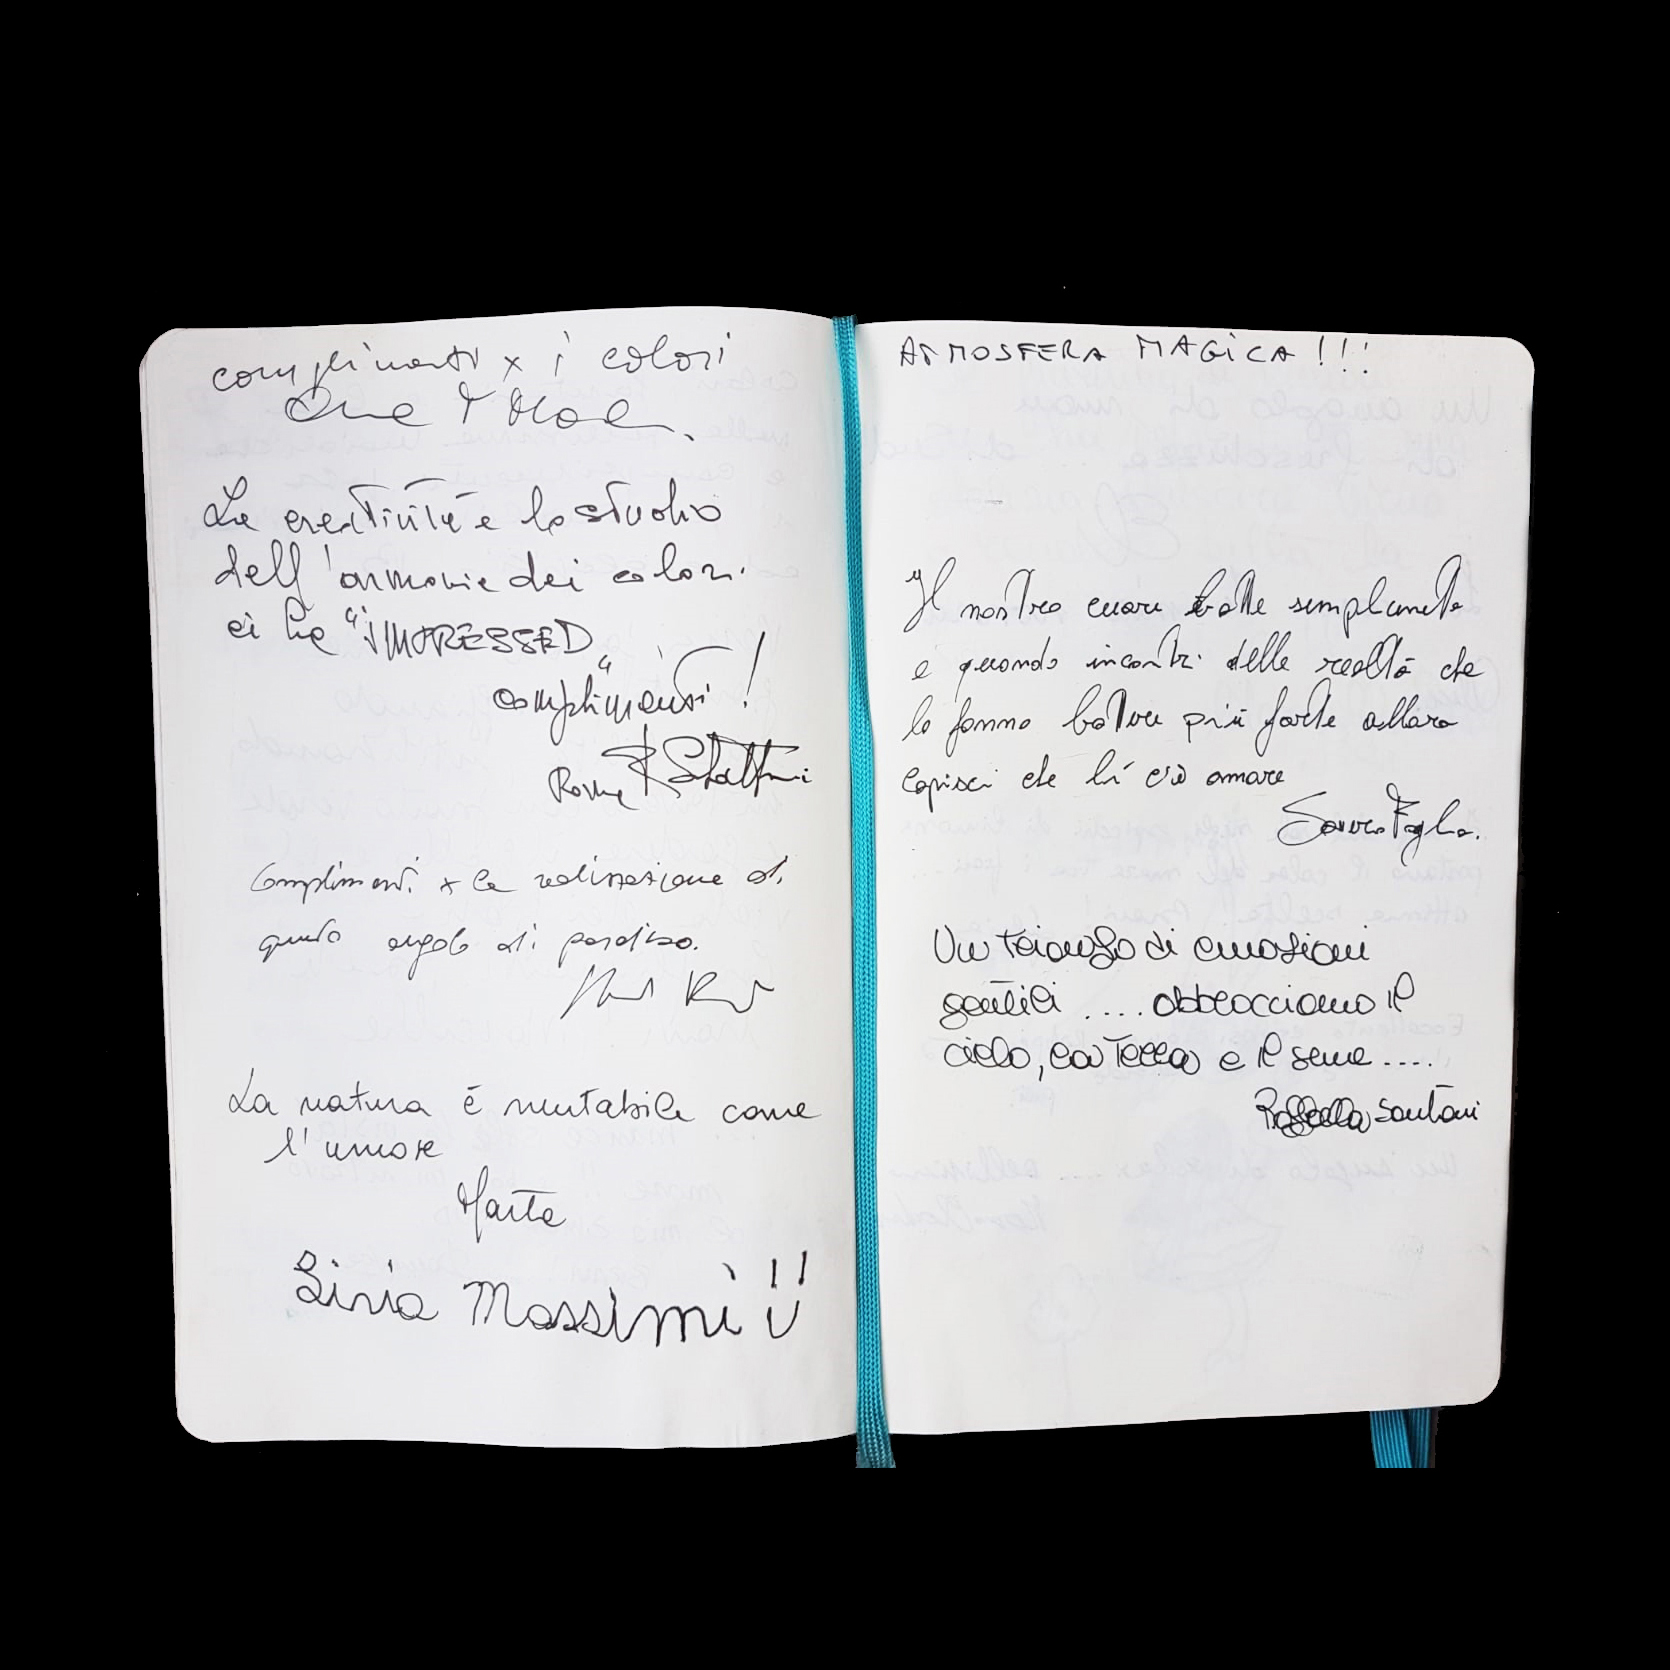 complimenti x i colori
La creatività e lo studio
dell'armonia dei colori
ci ha "IMPRESSED"
complimenti!
Roma
Complimenti x la realizzazione di
questo angolo di paradiso.
La natura è mutabile come
l'umore
Marta
Livia Massimi !!
ATMOSFERA MAGICA !!!
Il nostro cuore batte semplicemente
e quando incontri delle realtà che
lo fanno battere più forte allora
capisci che lì c'è amore
Un triangolo di emozioni
gentili .... abbracciamo il
cielo, la terra e il seme ....
Raffaella Santoni